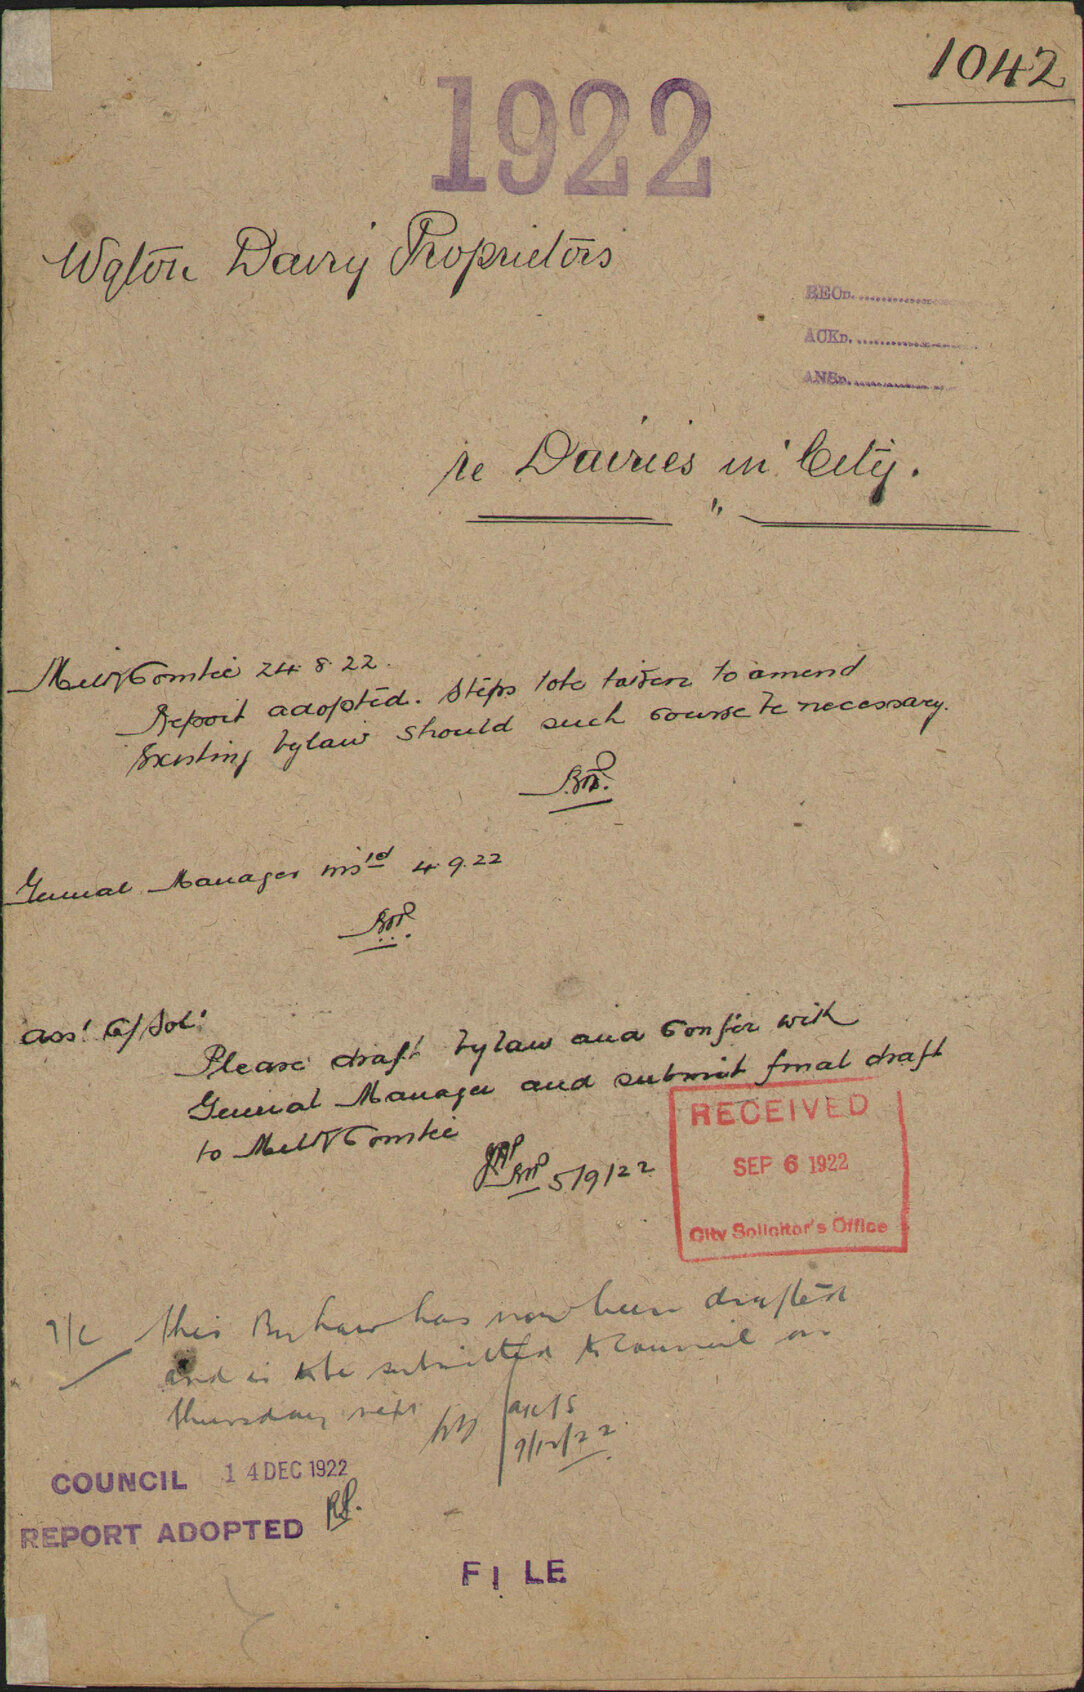 1042
1922
Wgton Dairy Proprietors
RECD.
ACKD.
ANSD.
re Dairies in City.
Milk Comtee 24.8.22.
Report adopted. Steps to be taken to amend
Existing bylaw should such course be necessary.
General Manager 4.9.22
Ass! C/Sol!
Please draft bylaw and confer with
General Manager and submit final draft
to Milk Comtee
5/9/22
RECEIVED
SEP 6 1922
City Solicitor's Office
T/C This By law has now been drafted
and is to be submitted to Council on
Thursday next
9/12/22
COUNCIL 14 DEC 1922
REPORT ADOPTED
FILE